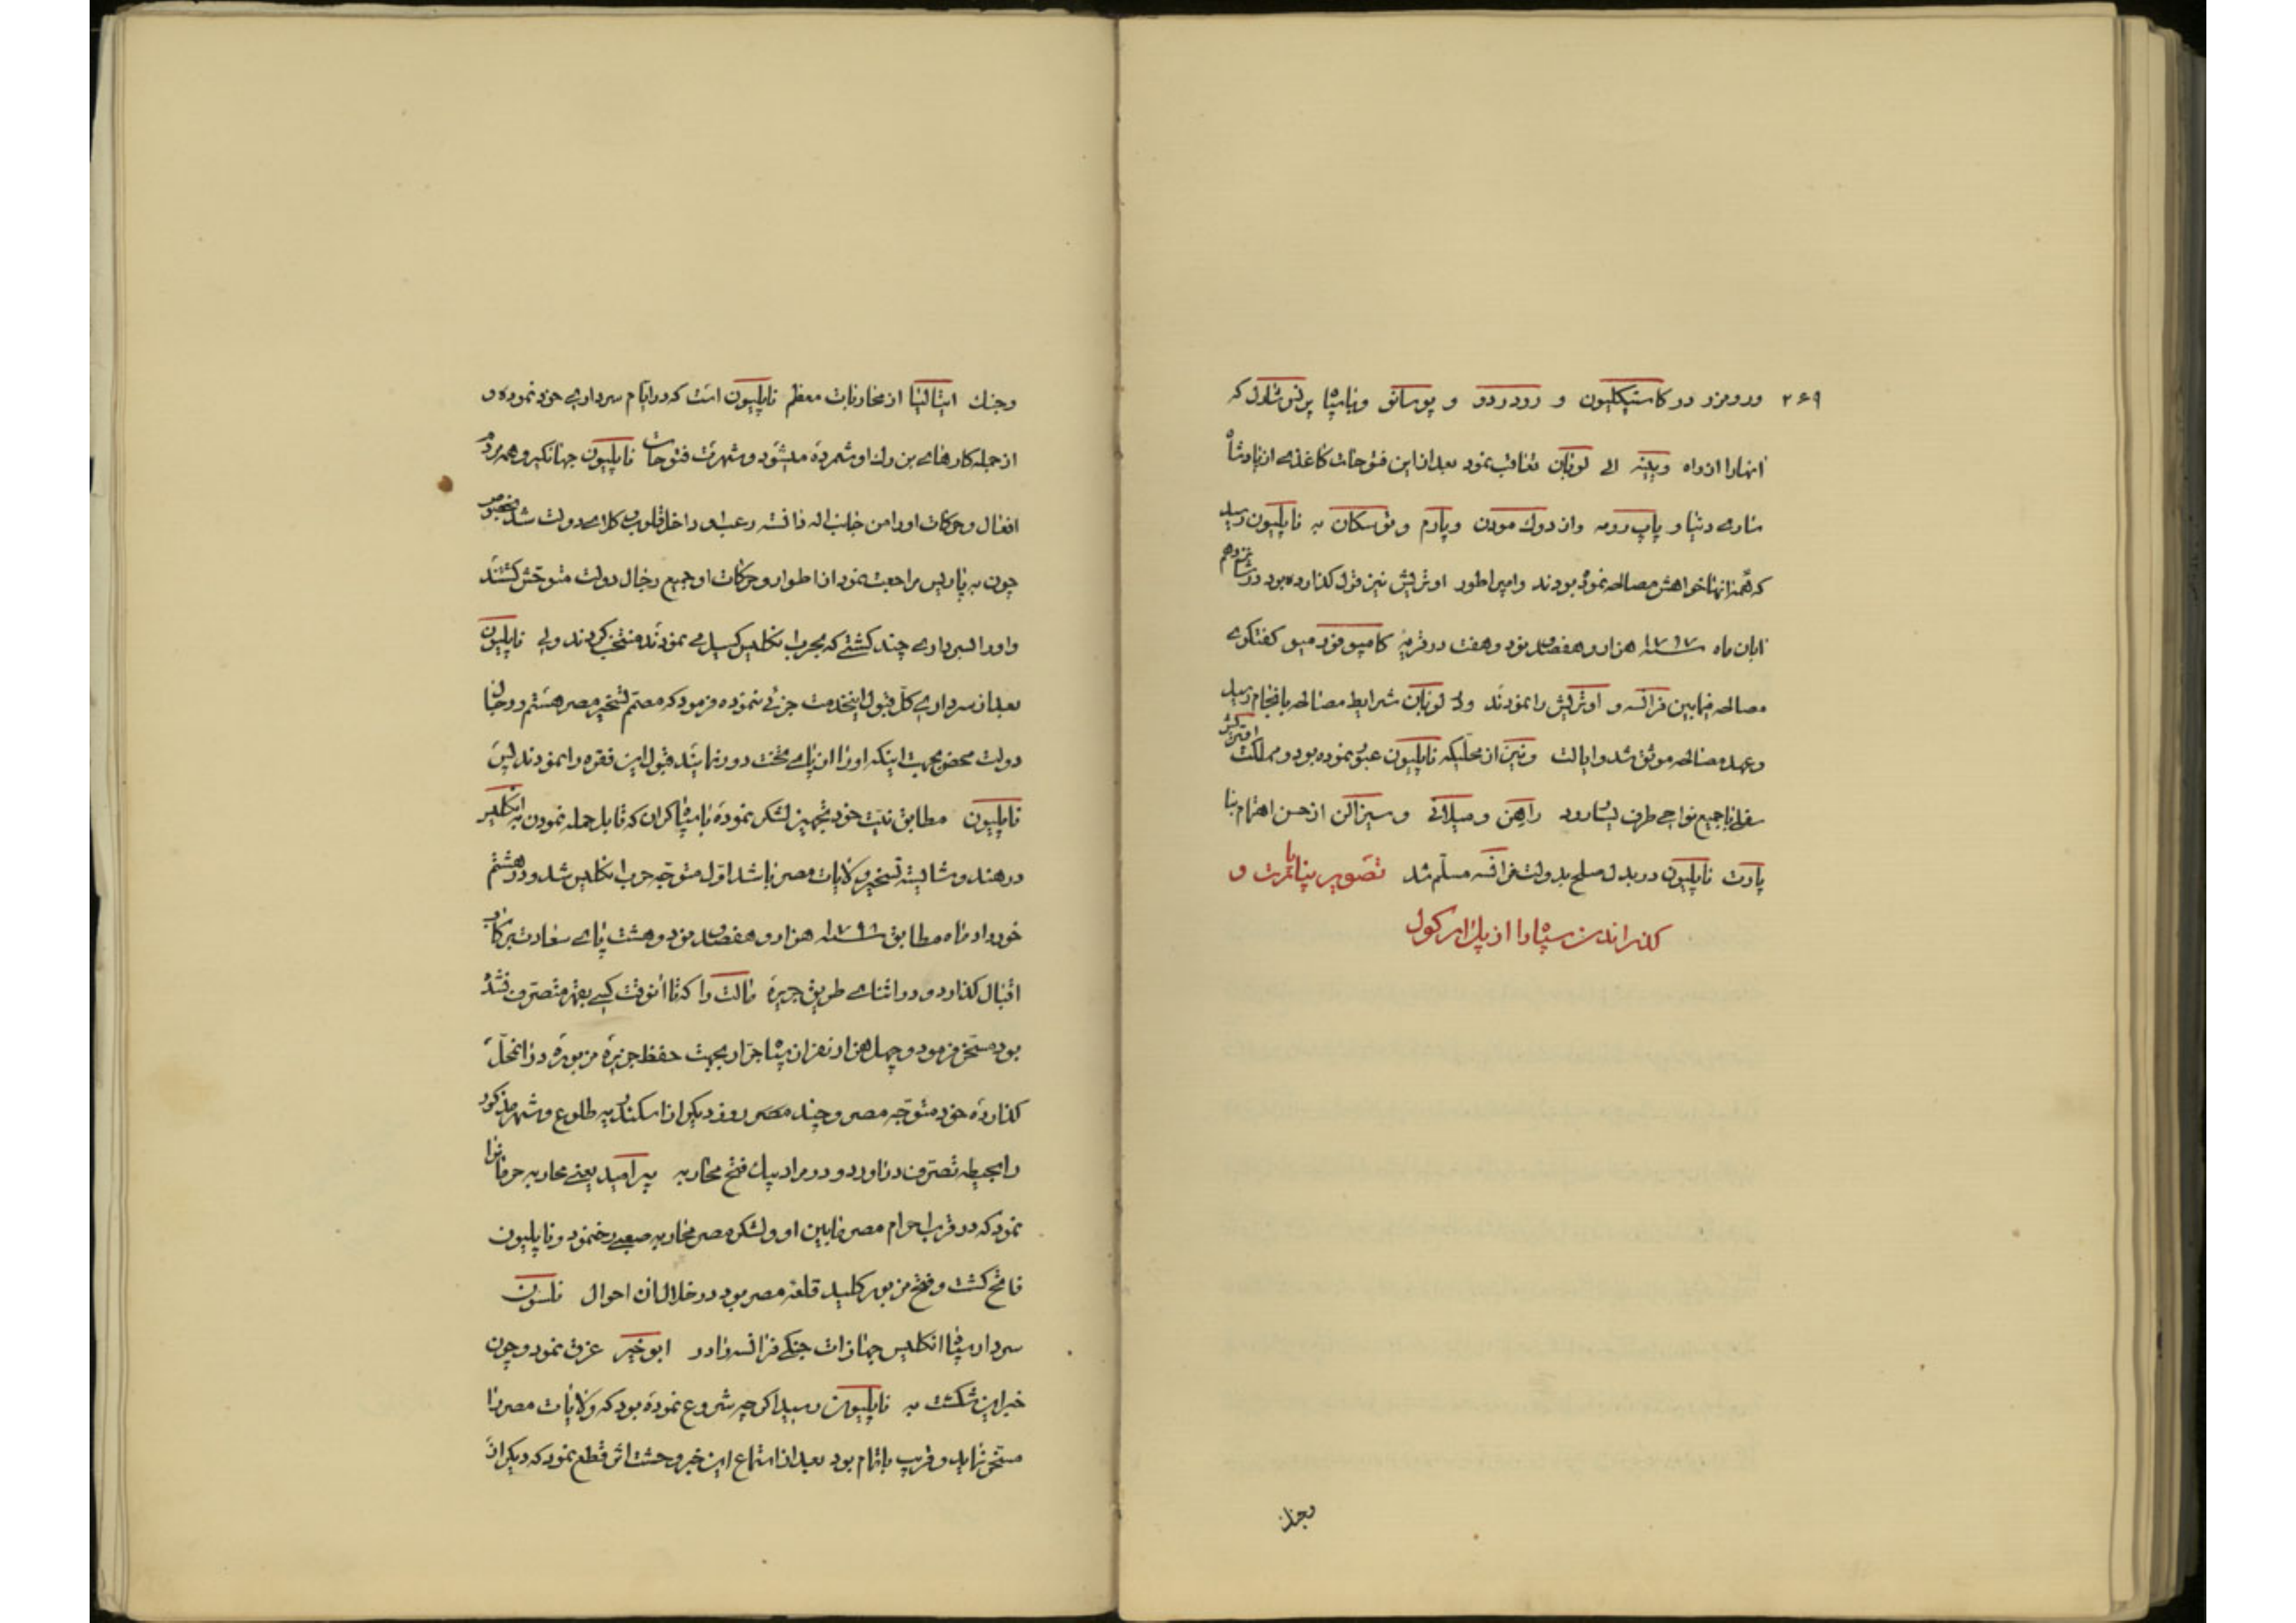 ۲۶۹ ورومزد دو کاستیکلیون و رودردو و پوسانو وبا سپاه پرنس شارل که
انهارا از راه وینه الی لوبان تعاقب نمود بعد از این فتوحات کاغذی از پادشاه
ساردنیا و پاپ رومه واز دوک مودن وپارم وتوسکان به ناپلیون رسید
که همه انها خواهش مصالحه نموده بودند وامپراطور اوتریش نیز قرل کذارده بود در شانزدهم
ابان ماه ۱۷۹۷ هزار و هفصد نود وهفت در قریه کامپو فورمیو کفتکوی
مصالحه فیمابین فرانسه و اوتریش را نمودند ولی لوبان شرایط مصالحه بانجام رسید
وعهد مصالحه موثق شد وایالت ونیز از محلیکه ناپلیون عبور نموده بود ومملکت اوتریش
سفلی با جمیع نواحی طرف یسار رود راهن ومیلانی وسیزالن از حسن اهتمام بنا
پارت ناپلیون در بدل صلح بدولت فرانسه مسلم شد تصویر بناپارت و
کذراندن سپاه را از پل ارکول
بعد
وجنک ایتالیا از محاربات معظم ناپلیون است که در ایام سرداری خود نموده و
از جمله کارهای بزرک او شمرده میشود وشهرت فتوحات ناپلیون جهانکیر و همه مردم
افعال وحرکات اورا من جانب اله دانسته رعب او داخل قلوب وکلای دولت شد
چون به پاریس مراجعت نمود از اطوار وحرکات او جمیع رجال دولت متوحش کشتند
واورا بسرداری چند کشتی که بحرب انکلیس کسیل می نمودند منتخب کردند ولی ناپلیون
بعد از سرداری کل قبول اینخدمت جزئی ننموده فرمود که مصمم تسخیر مصر هستم ورجال
دولت محض بجهت اینکه اورا از پای تخت دور نمایند قبول این فقره را نمودند پس
ناپلیون مطابق نیت خود تجهیز لشکر نموده با سپاه کران که قابل حمله نمودن به انکلیس
در هند وشایسته تسخیر ولایات مصر باشد اول متوجه حرب انکلیس شد ودر هشتم
خورداد ماه مطابق ۱۷۹۸ هزار و هفصد نود وهشت پای سعادت برکاب
اقبال کذارد و در اثنای طریق جزیره مالت را که تا انوقت کسی بقهر متصرف نشده
بود مسخر فرمود وچهل هزار نفر از سپاه جرار بجهت حفظ جزیره مزبوره در انمحل
کذارده خود متوجه مصر وچند مصر روز دیکر از اسکندریه طلوع وشهر مذکور
را بحیطه تصرف دراورد ودر مرادبیک فتح محاربه پیرامید یعنی محاربه حرمانرا
نمود که در قرب احرام مصر مابین او ولشکر مصر محاربه صعبی رخنمود وناپلیون
فاتح کشت وفتح مزبور کلید قلعه مصر بود در خلال ان احوال نلسون
سردار سپاه انکلیس جهازات جنکی فرانسه را در ابوخیر غرق نمود وچون
خبر این شکست به ناپلیون رسید اکرچه شروع نموده بود که ولایات مصر را
مسخر نماید وقریب باتمام بود بعد از استماع این خبر وحشت اثر قطع نمود که دیکر از